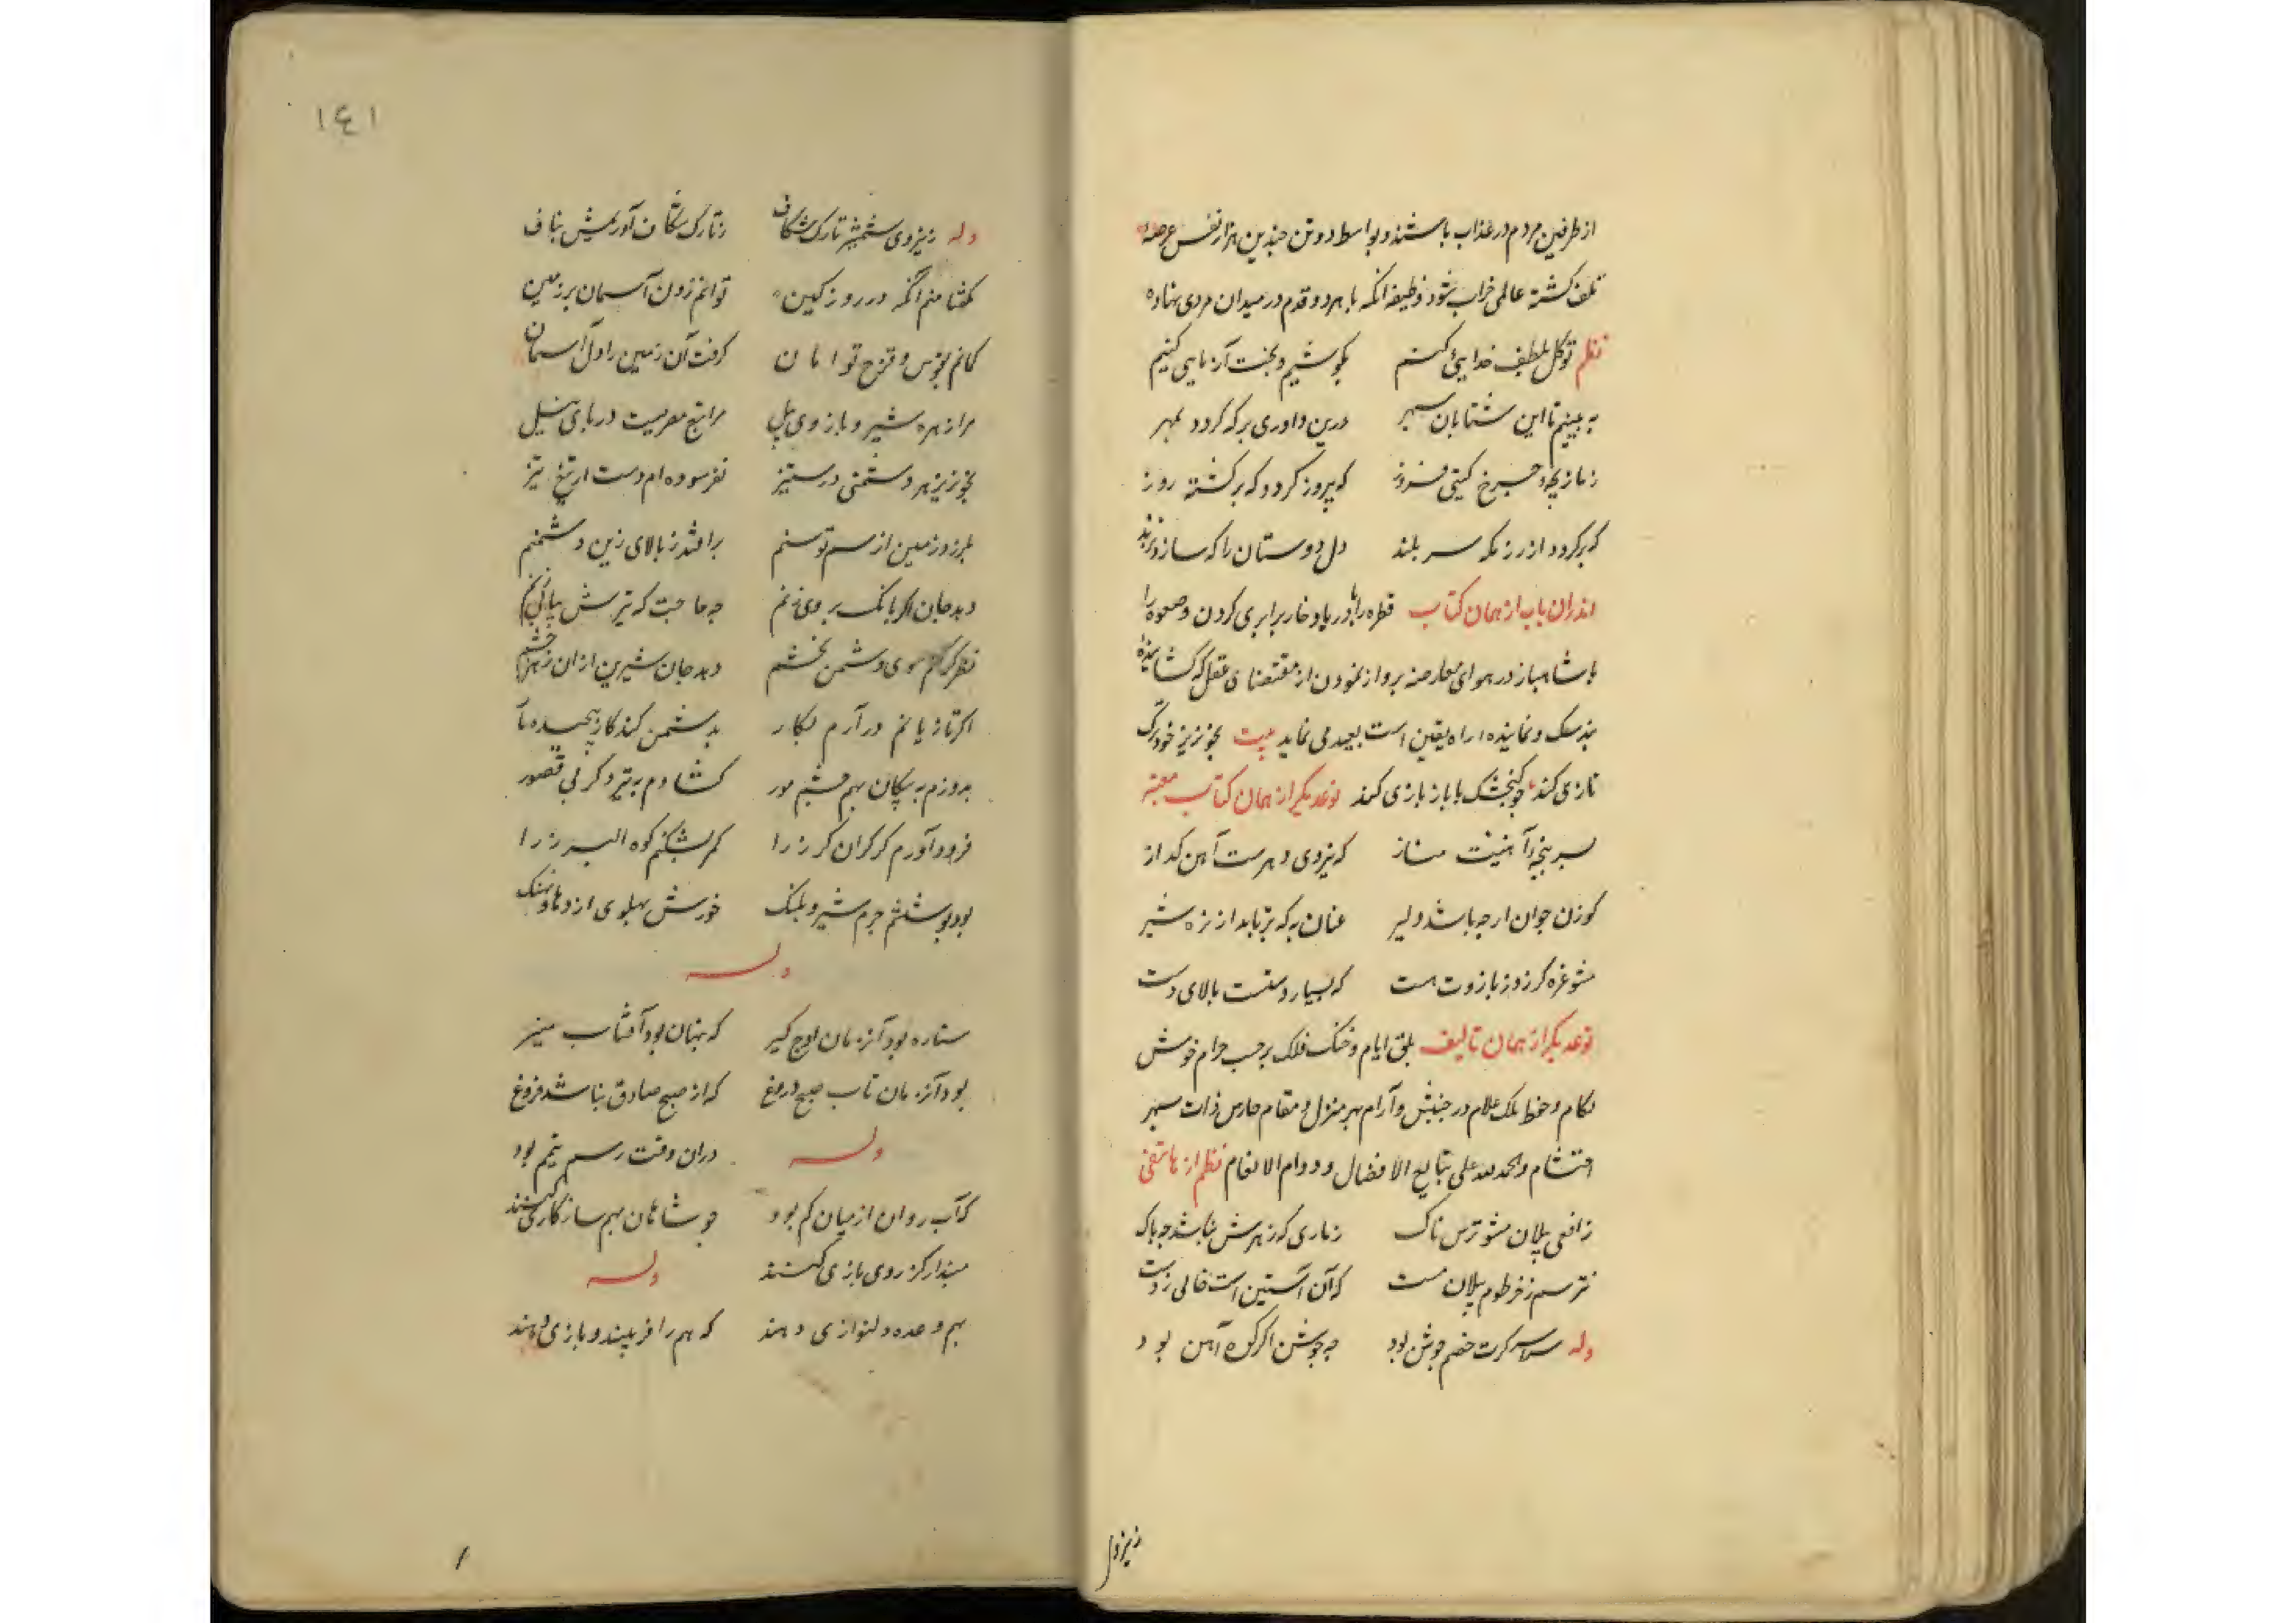 از طرفین مردم در عذاب باشند و بواسطه دو تن چندین هزار نفس عرضه
تلف گشته عالمی خراب شود وظیفه آنکه با هم دو قدم در میدان مردی نهاده
نظم توکل بلطف خدایی کنیم بکوشیم و بخت آزمایی کنیم
به بینیم تا این شتابان سپهر درین داوری بر که گردد بمهر
ز بازیچه چرخ گیتی فروز که پیروز گردد که برگشته روز
که برگردد از رزمگه سر بلند دل دوستان را که سازد نژند
اندران باب از همان کتاب قطره را با دریا دخار برابری کردن و صعوه را
با شاهباز در هوای معارضه پرواز نمودن از مقتضای عقل که گشاینده
بند شک و نماینده راه یقین است بعید می نماید بیت بخونریز خود ترک
تازی کند چو گنجشک با باز بازی کند نوعدیگر از همان کتاب
بسر پنجه آهنینت مناز که نیروی دهرست آهن گداز
گوزن جوان ارچه باشد دلیر عنان به که برتابد از نره شیر
مشو غره گر زور بازوت هست که بسیار دستست بالای دست
نوعدیگر از همان تالیف ابلق ایام و خنگ فلک بر حسب مرام خوش
لکام و حفظ ملک علام در جنبش و آرام بهر منزل و مقام حارس ذات سپهر
احتشام والحمد لله علی تتابع الافضال و دوام الانعام نظم از هاتفی
ز افعی پیلان مشو ترس ناک ز ماری که زهرش نباشد چه باک
نترسم ز خرطوم پیلان مست که آن آستین است خالی ز دست
وله سراسر گرت خصم جوشن بود چه جوشن اگر کوه آهن بود
۱٤۱
وله ز نیروی شمشیر تارک شکاف ز تارک شکاف آوریمش بناف
کمانم بقوس و قزح توامان گرفت آن زمین را و آن آسمان
مرا زهره شیر و بازوی پیل مرا تیغ مصریست دریای نیل
بخونریز هر دشمنی در ستیز نفرسوده ام دست از تیغ تیز
بلرزد زمین از سم توسنم برافتد ز بالای زین دشمنم
دهد جان اگر بانگ بر وی زنم چه حاجت که تیرش بیاپی زنم
نظر گر کنم سوی دشمن بخشم دهد جان شیرین از آن زهر چشم
اگر تازیانم درآرم بکار بدشمن کند کار پیچیده مار
بدوزم به پیکان بهم چشم مور گشادم به تیر دگر بی قصور
فرود آورم گر گران گرز را کمر بشکنم کوه البرز را
بود پوششم چرم شیر و پلنگ خورش پهلوی اژدها و نهنگ
وله
ستاره بود آن زمان اوج گیر که پنهان بود آفتاب منیر
بود آن زمان تاب صبح دروغ که از صبح صادق نباشد فروغ
وله دران وقت رسم تیمم بود
که آب روان از میان گم بود چو شاهان بهم سازگاری کنند
مپندار کز روی بازی کنند وله
بهم وعده دلنوازی دهند که هم را فریبند و بازی دهند